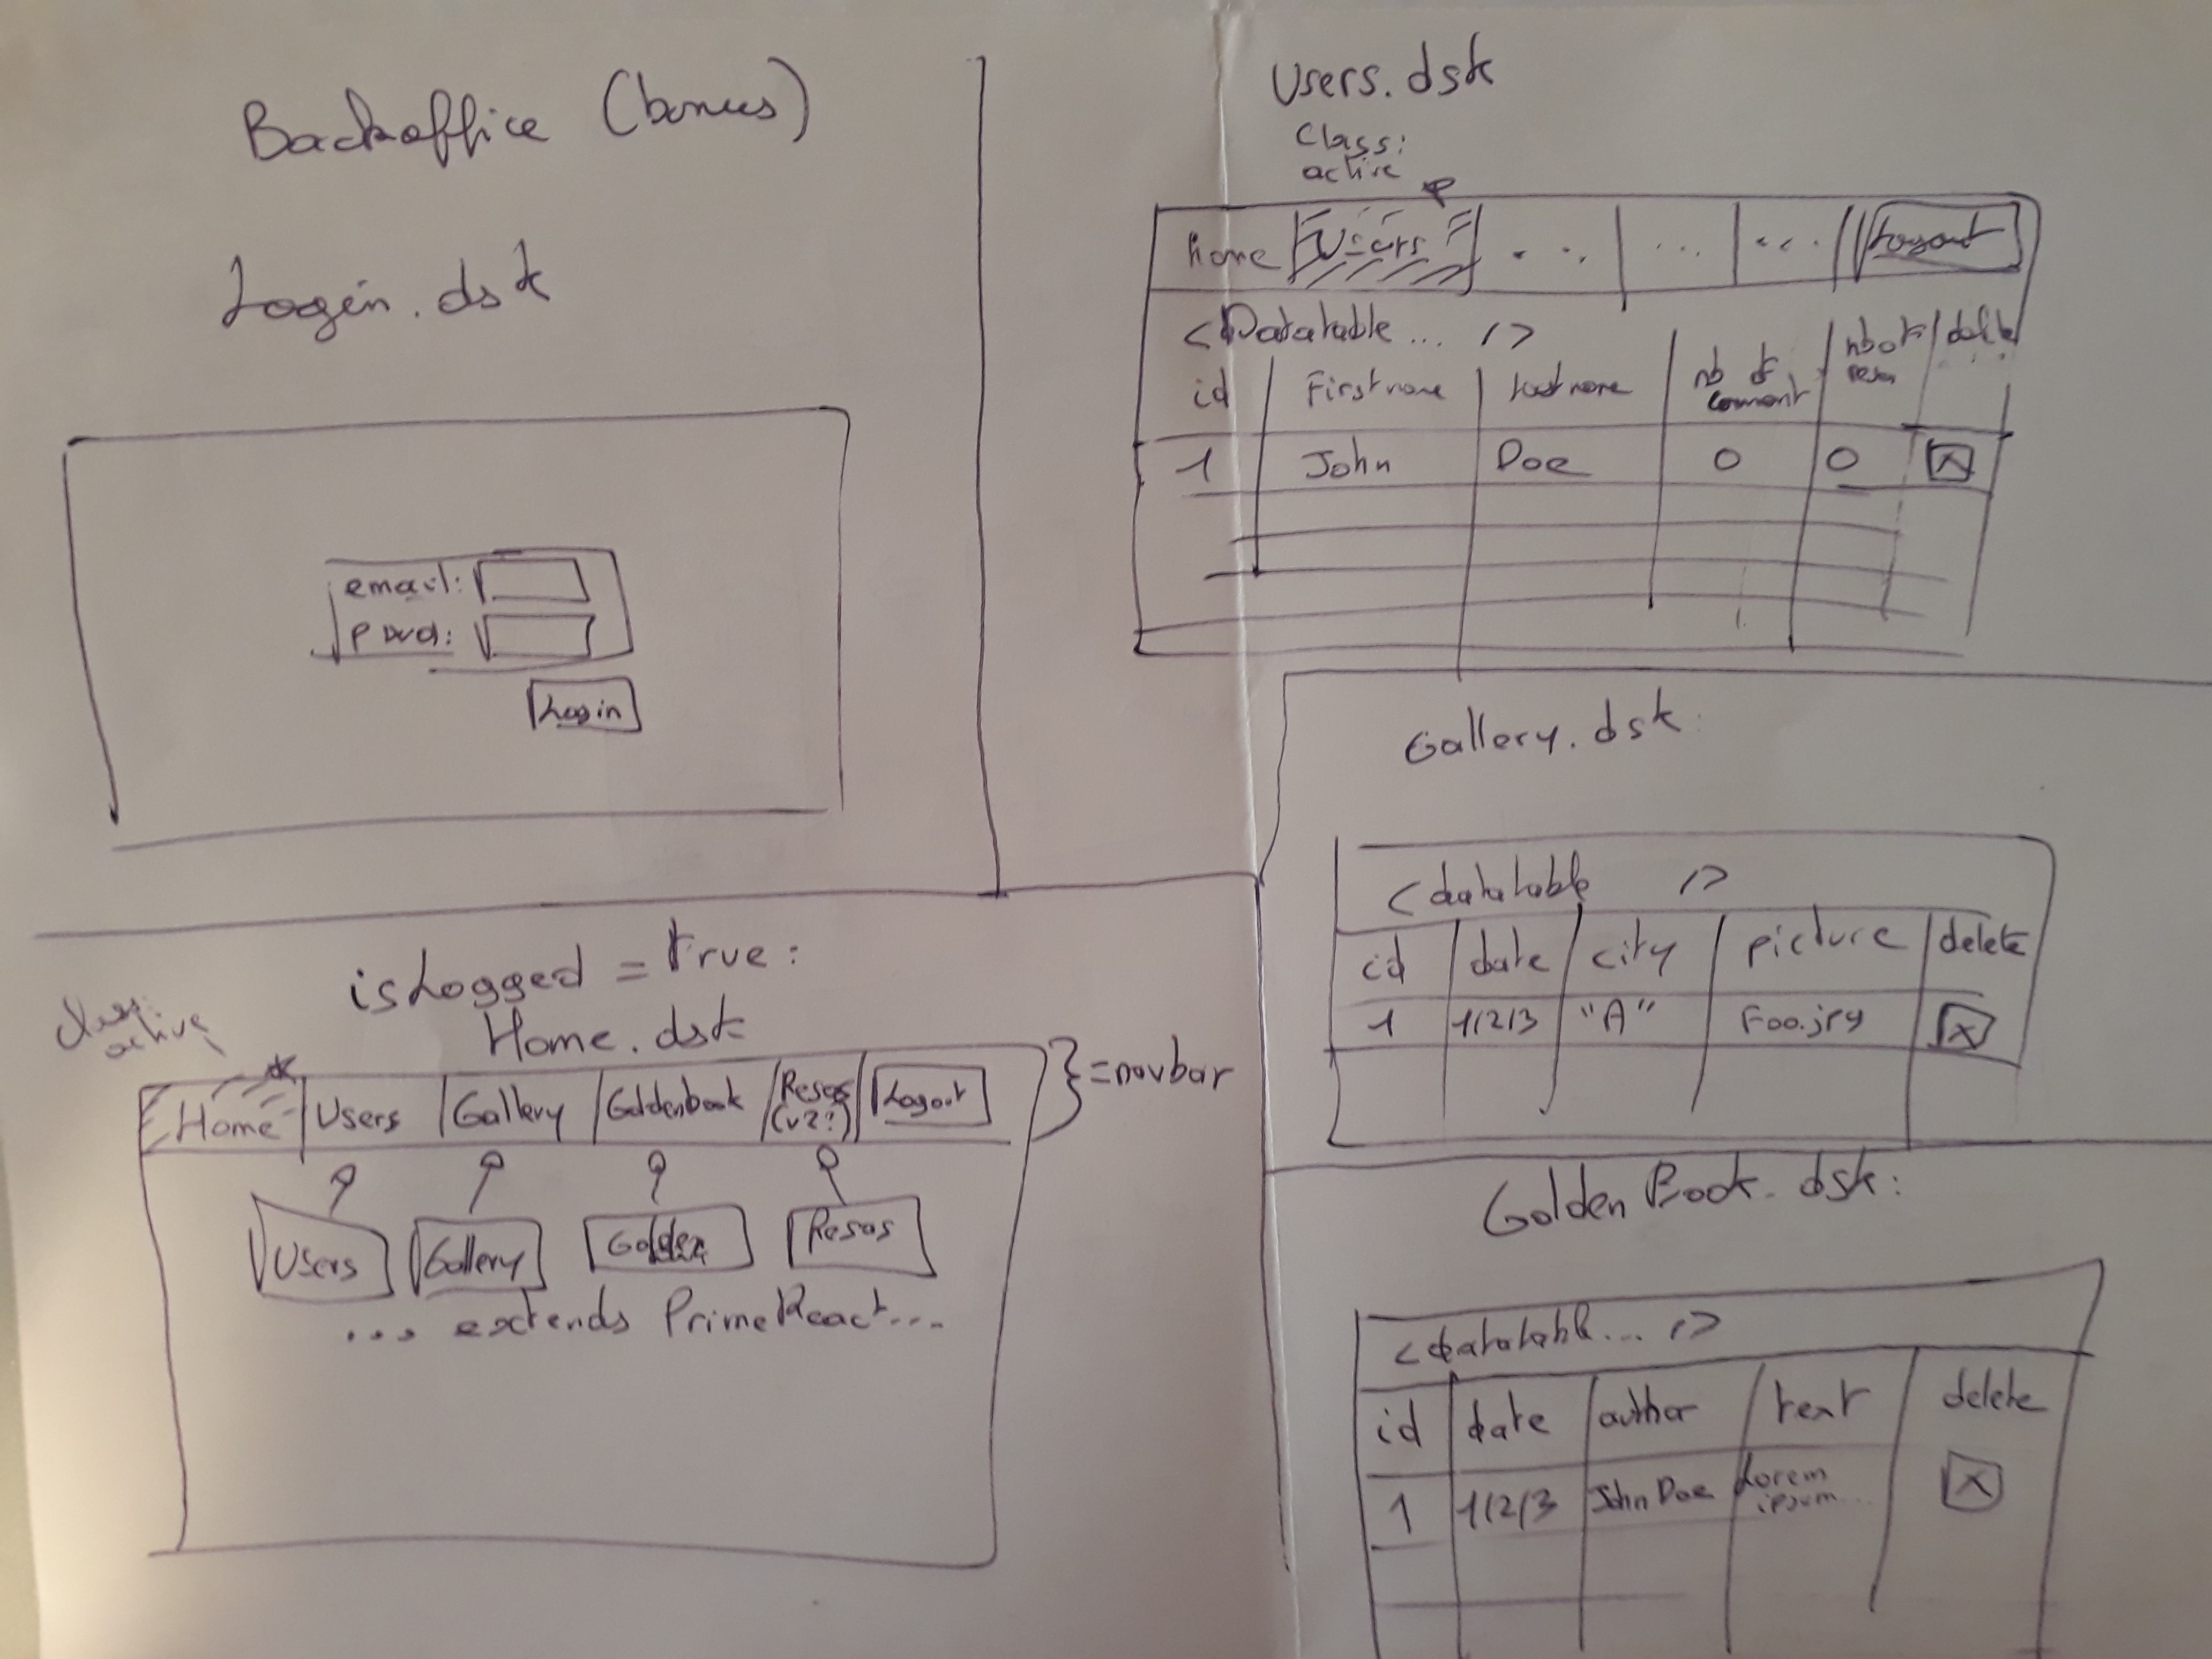 Backoffice (bonus)
Login.dsk
email:
pwd:
Login
isLogged = true:
Home.dsk
class:
active
Home Users Gallery Goldenbook Resas (v2?) Logout
} = navbar
Users Gallery Golden Resas
... extends PrimeReact...
Users.dsk
Class:
active
home Users ... ... ... Logout
<Datatable ... />
id Firstname Lastname nb of comment nb of resa delete
1 John Doe 0 0 X
Gallery.dsk:
<datatable />
id date city picture delete
1 1/2/3 "A" Foo.jpg X
Golden Book.dsk:
<datatable... />
id date author text delete
1 1/2/3 John Doe Lorem ipsum... X